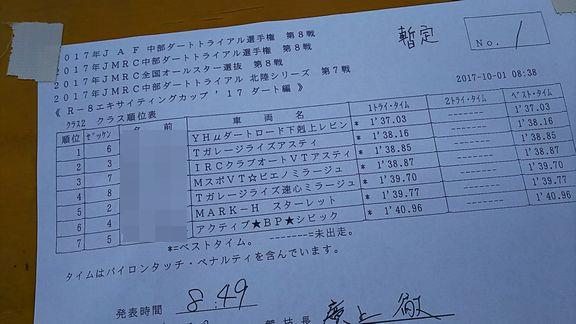 2017年JAF中部ダートトライアル選手権 第8戦
2017年JMRC中部ダートトライアル選手権 第8戦
2017年JMRC全国オールスター選抜 第8戦
2017年JMRC中部ダートトライアル 北陸シリーズ 第7戦
《 R-8エキサイティングカップ '17 ダート編 》
暫定
No. 1
2017-10-01 08:38
クラス2 クラス順位表
順位 ゼッケン 名 前 車 両 名 1トライ・タイム 2トライ・タイム ベスト・タイム
1 6 YHμダートロード下剋上レビン * 1'37.03 ------- 1'37.03
2 3 Tガレージライズアスティ * 1'38.16 ------- 1'38.16
3 7 IRCクラブオートVTアスティ * 1'38.85 ------- 1'38.85
4 8 MスポVT☆ピエノミラージュ * 1'38.87 ------- 1'38.87
5 2 Tガレージライズ速心ミラージュ * 1'39.70 ------- 1'39.70
6 4 MARK-H スターレット * 1'39.77 ------- 1'39.77
7 5 アクティブ★BP★シビック * 1'40.96 ------- 1'40.96
*=ベストタイム。 -------=未出走。
タイムはパイロンタッチ・ペナルティを含んでいます。
発表時間 8:49
長